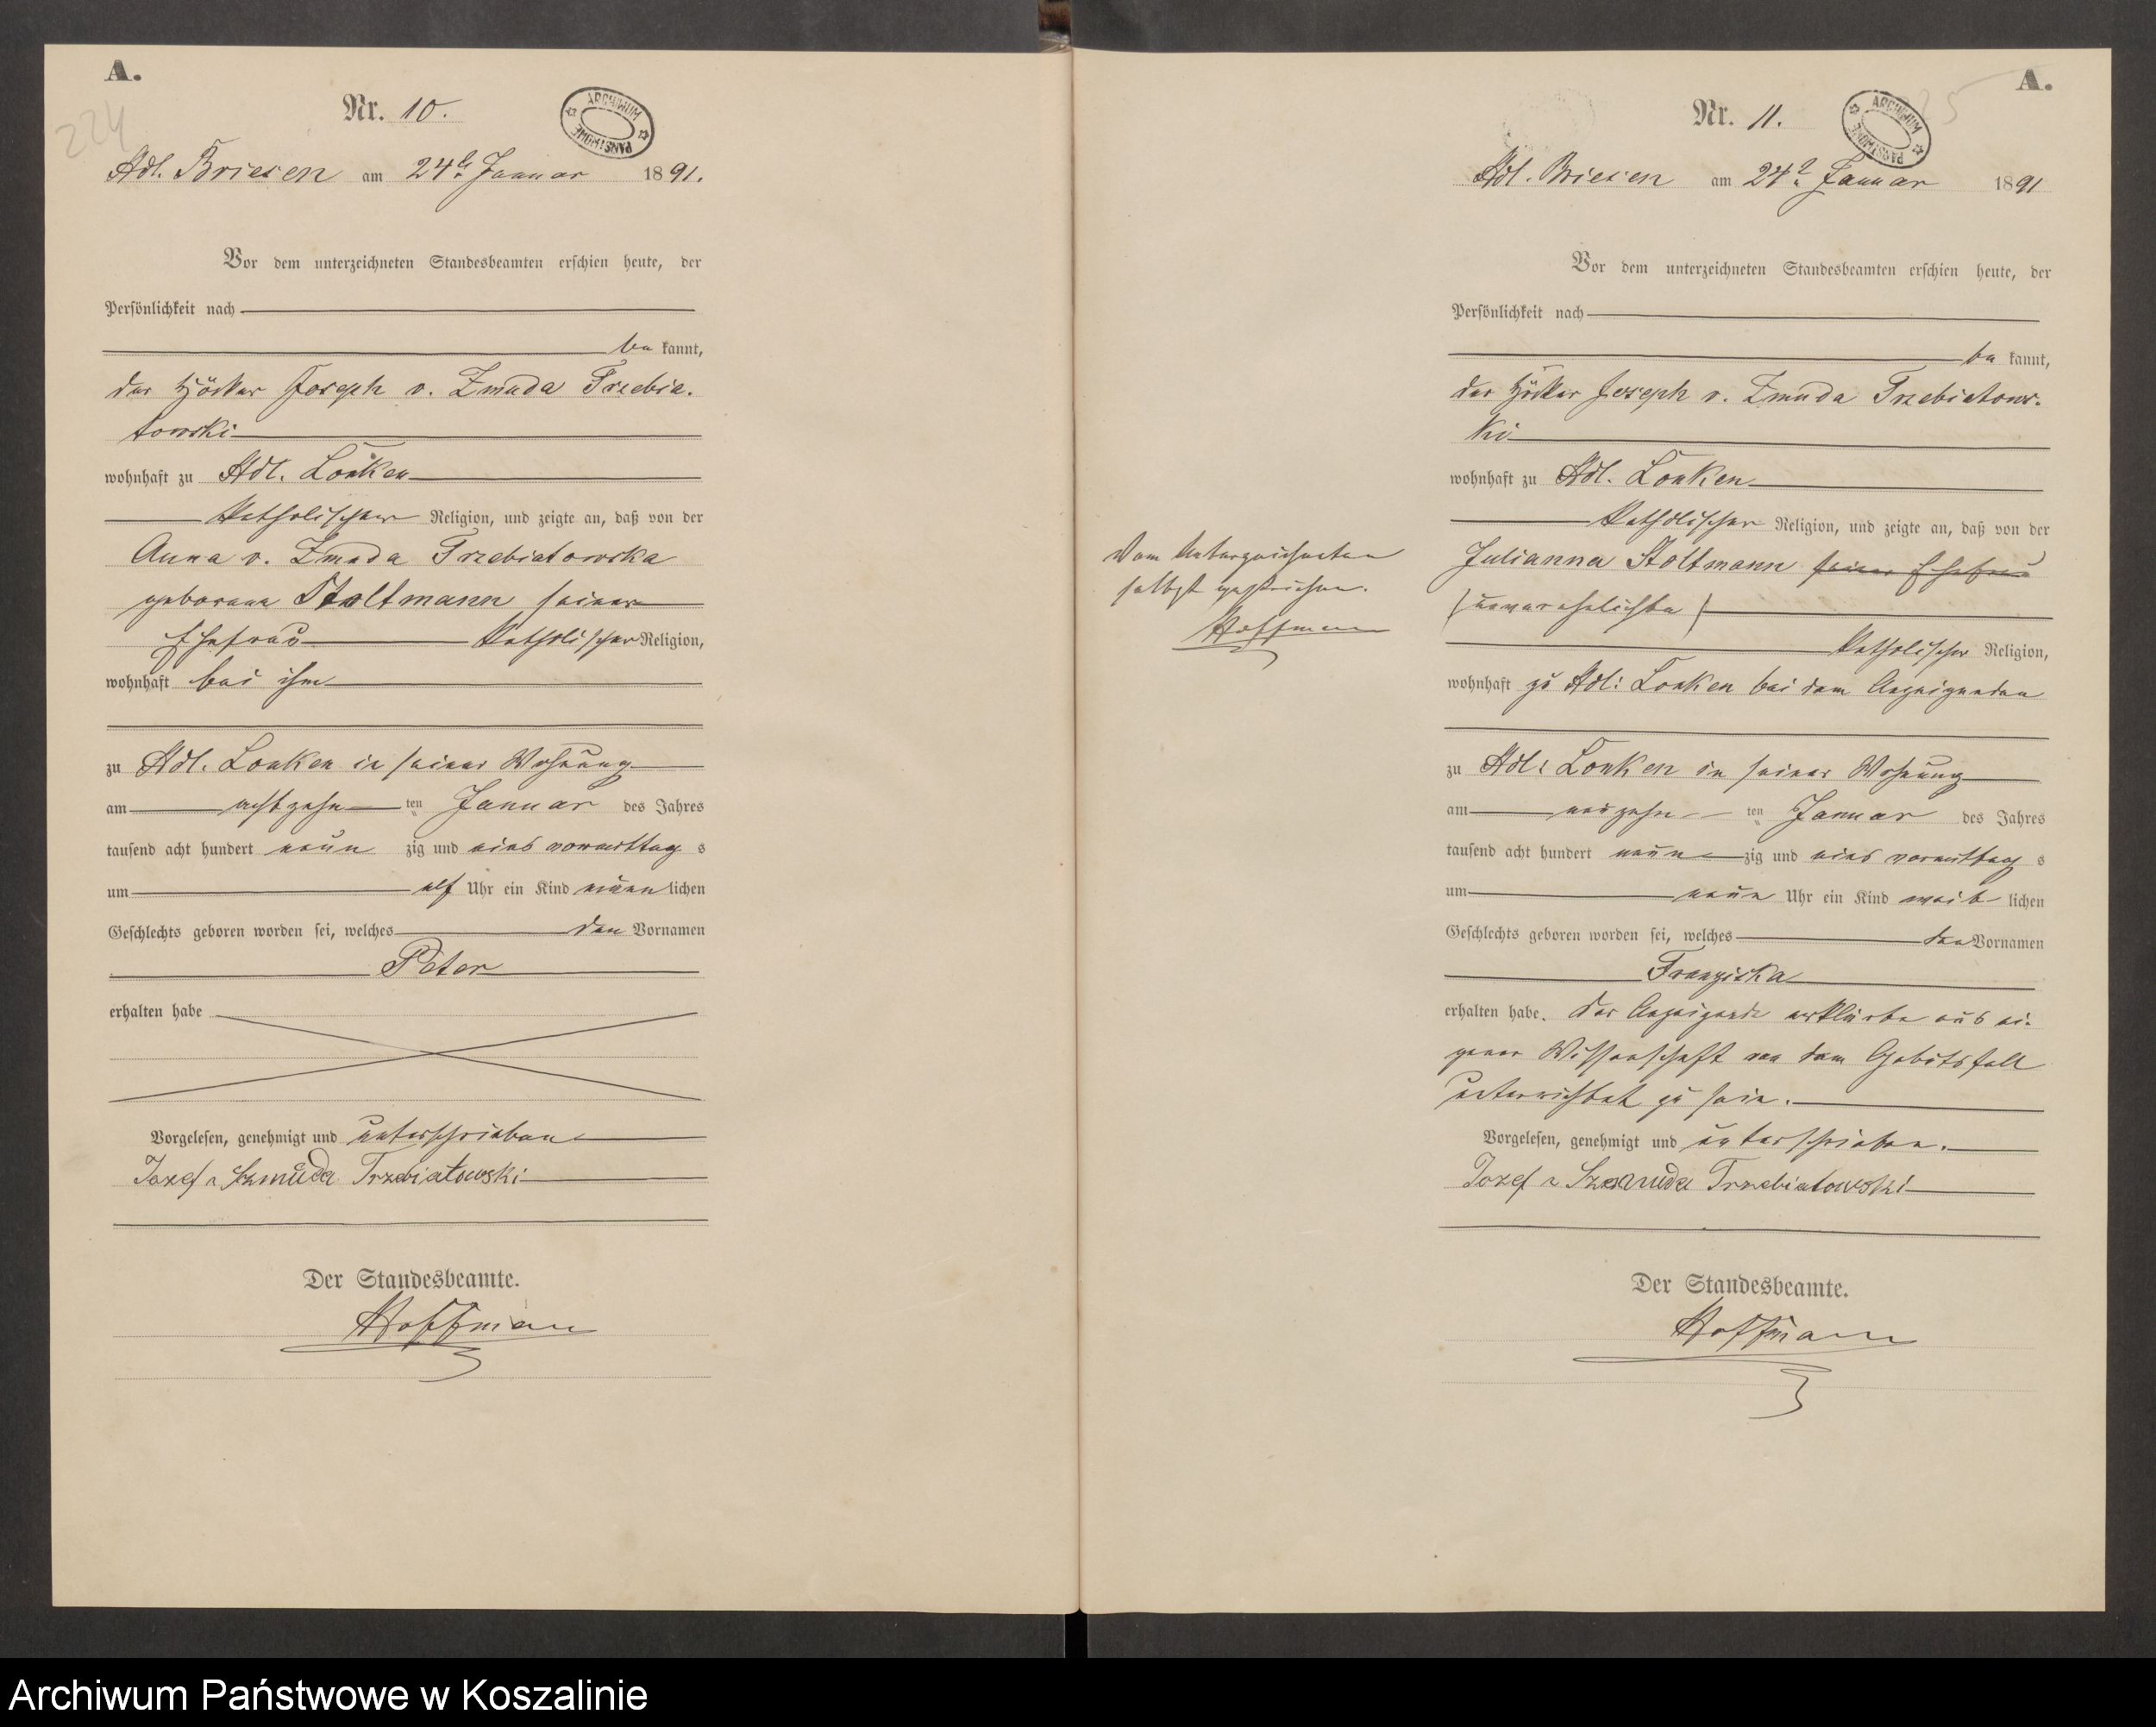 A.
224
Nr. 10.
ARCHIWUM PAŃSTWOWE
Adl. Briesen am 24t. Januar 1891.
Vor dem unterzeichneten Standesbeamten erschien heute, der
Persönlichkeit nach
be kannt,
der Höcker Joseph v. Zmuda Trzebia-
towski
wohnhaft zu Adl. Lonken
katholischer Religion, und zeigte an, daß von der
Anna v. Zmuda Trzebiatowska
geborene Stoltmann seiner
Ehefrau katholischer Religion,
wohnhaft bei ihm
zu Adl. Lonken in seiner Wohnung
am achtzehn ten Januar des Jahres
tausend acht hundert neun zig und eins vormittag s
um elf Uhr ein Kind männ lichen
Geschlechts geboren worden sei, welches den Vornamen
Peter
erhalten habe
Vorgelesen, genehmigt und unterschrieben
Jozef v Szmuda Trzebiatowski
Der Standesbeamte.
Hoffmann
A.
Nr. 11.
ARCHIWUM PAŃSTWOWE
Adl. Briesen am 24t. Januar 1891
Vor dem unterzeichneten Standesbeamten erschien heute, der
Persönlichkeit nach
be kannt,
der Höcker Joseph v. Zmuda Trzebiatows-
ki
wohnhaft zu Adl. Lonken
katholischer Religion, und zeigte an, daß von der
Julianna Stoltmann seiner Ehefrau
(unverehelichte)
katholischer Religion,
wohnhaft zu Adl: Lonken bei dem Anzeigenden
zu Adl: Lonken in seiner Wohnung
am neunzehn ten Januar des Jahres
tausend acht hundert neun zig und eins vormittag s
um neun Uhr ein Kind weib lichen
Geschlechts geboren worden sei, welches den Vornamen
Franziska
erhalten habe. Der Anzeigende erklärte aus ei-
gener Wissenschaft von dem Geburtsfall
unterrichtet zu sein.
Vorgelesen, genehmigt und unterschrieben.
Jozef v Szmuda Trzebiatowski
Der Standesbeamte.
Hoffmann
Vom Unterzeichneten
selbst gestrichen.
Hoffmann
Archiwum Państwowe w Koszalinie